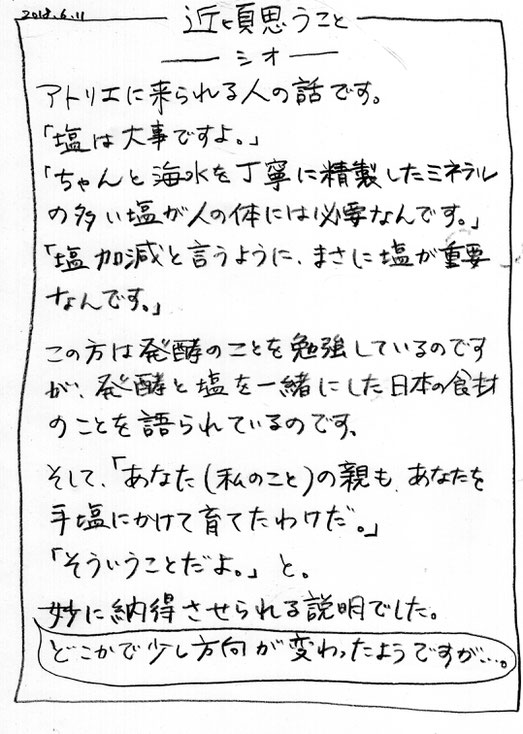 2018.6.11
近頃思うこと
シオ
アトリエに来られる人の話です。
「塩は大事ですよ。」
「ちゃんと海水を丁寧に精製したミネラル
の多い塩が人の体には必要なんです。」
「塩加減と言うように、まさに塩が重要
なんです。」
この方は発酵のことを勉強しているのです
が、発酵と塩を一緒にした日本の食材
のことを語られているのです。
そして、「あなた(私のこと)の親も、あなたを
手塩にかけて育てたわけだ。」
「そういうことだよ。」と。
妙に納得させられる説明でした。
どこかで少し方向が変わったようですが…。